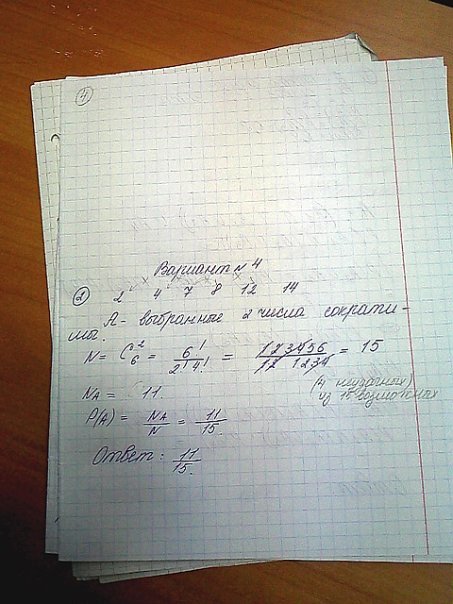 4
Вариант № 4
② 2 4 7 8 12 14
А - выбранные 2 числа сократи-
мы.
N = C₆² = 6! / 2! 4! = 123456 / 12 1234 = 15
N_A = 11
(4 неудачных)
из 15 возможных
P(A) = N_A / N = 11 / 15.
Ответ: 11 / 15.